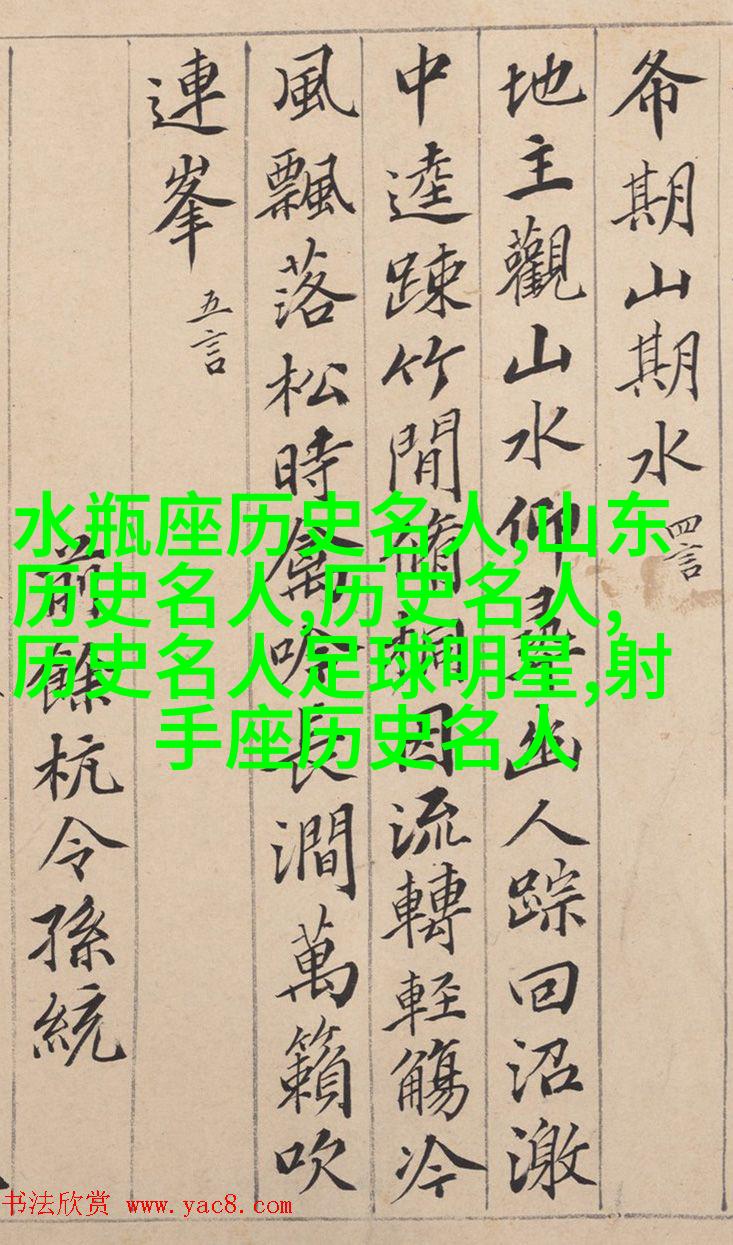 希期山期水 四言
地主觀山水仰尋幽人踪回沼激
中逵踈竹間脩桐因流轉輕觴冷
風飄落松時禽吟長澗萬籟吹
連峯 五言
前餘杭令孫統
水瓶座历史名人,山东
历史名人,历史名人,
历史名人足球明星,射
手座历史名人
书法欣赏 www.yac8.com